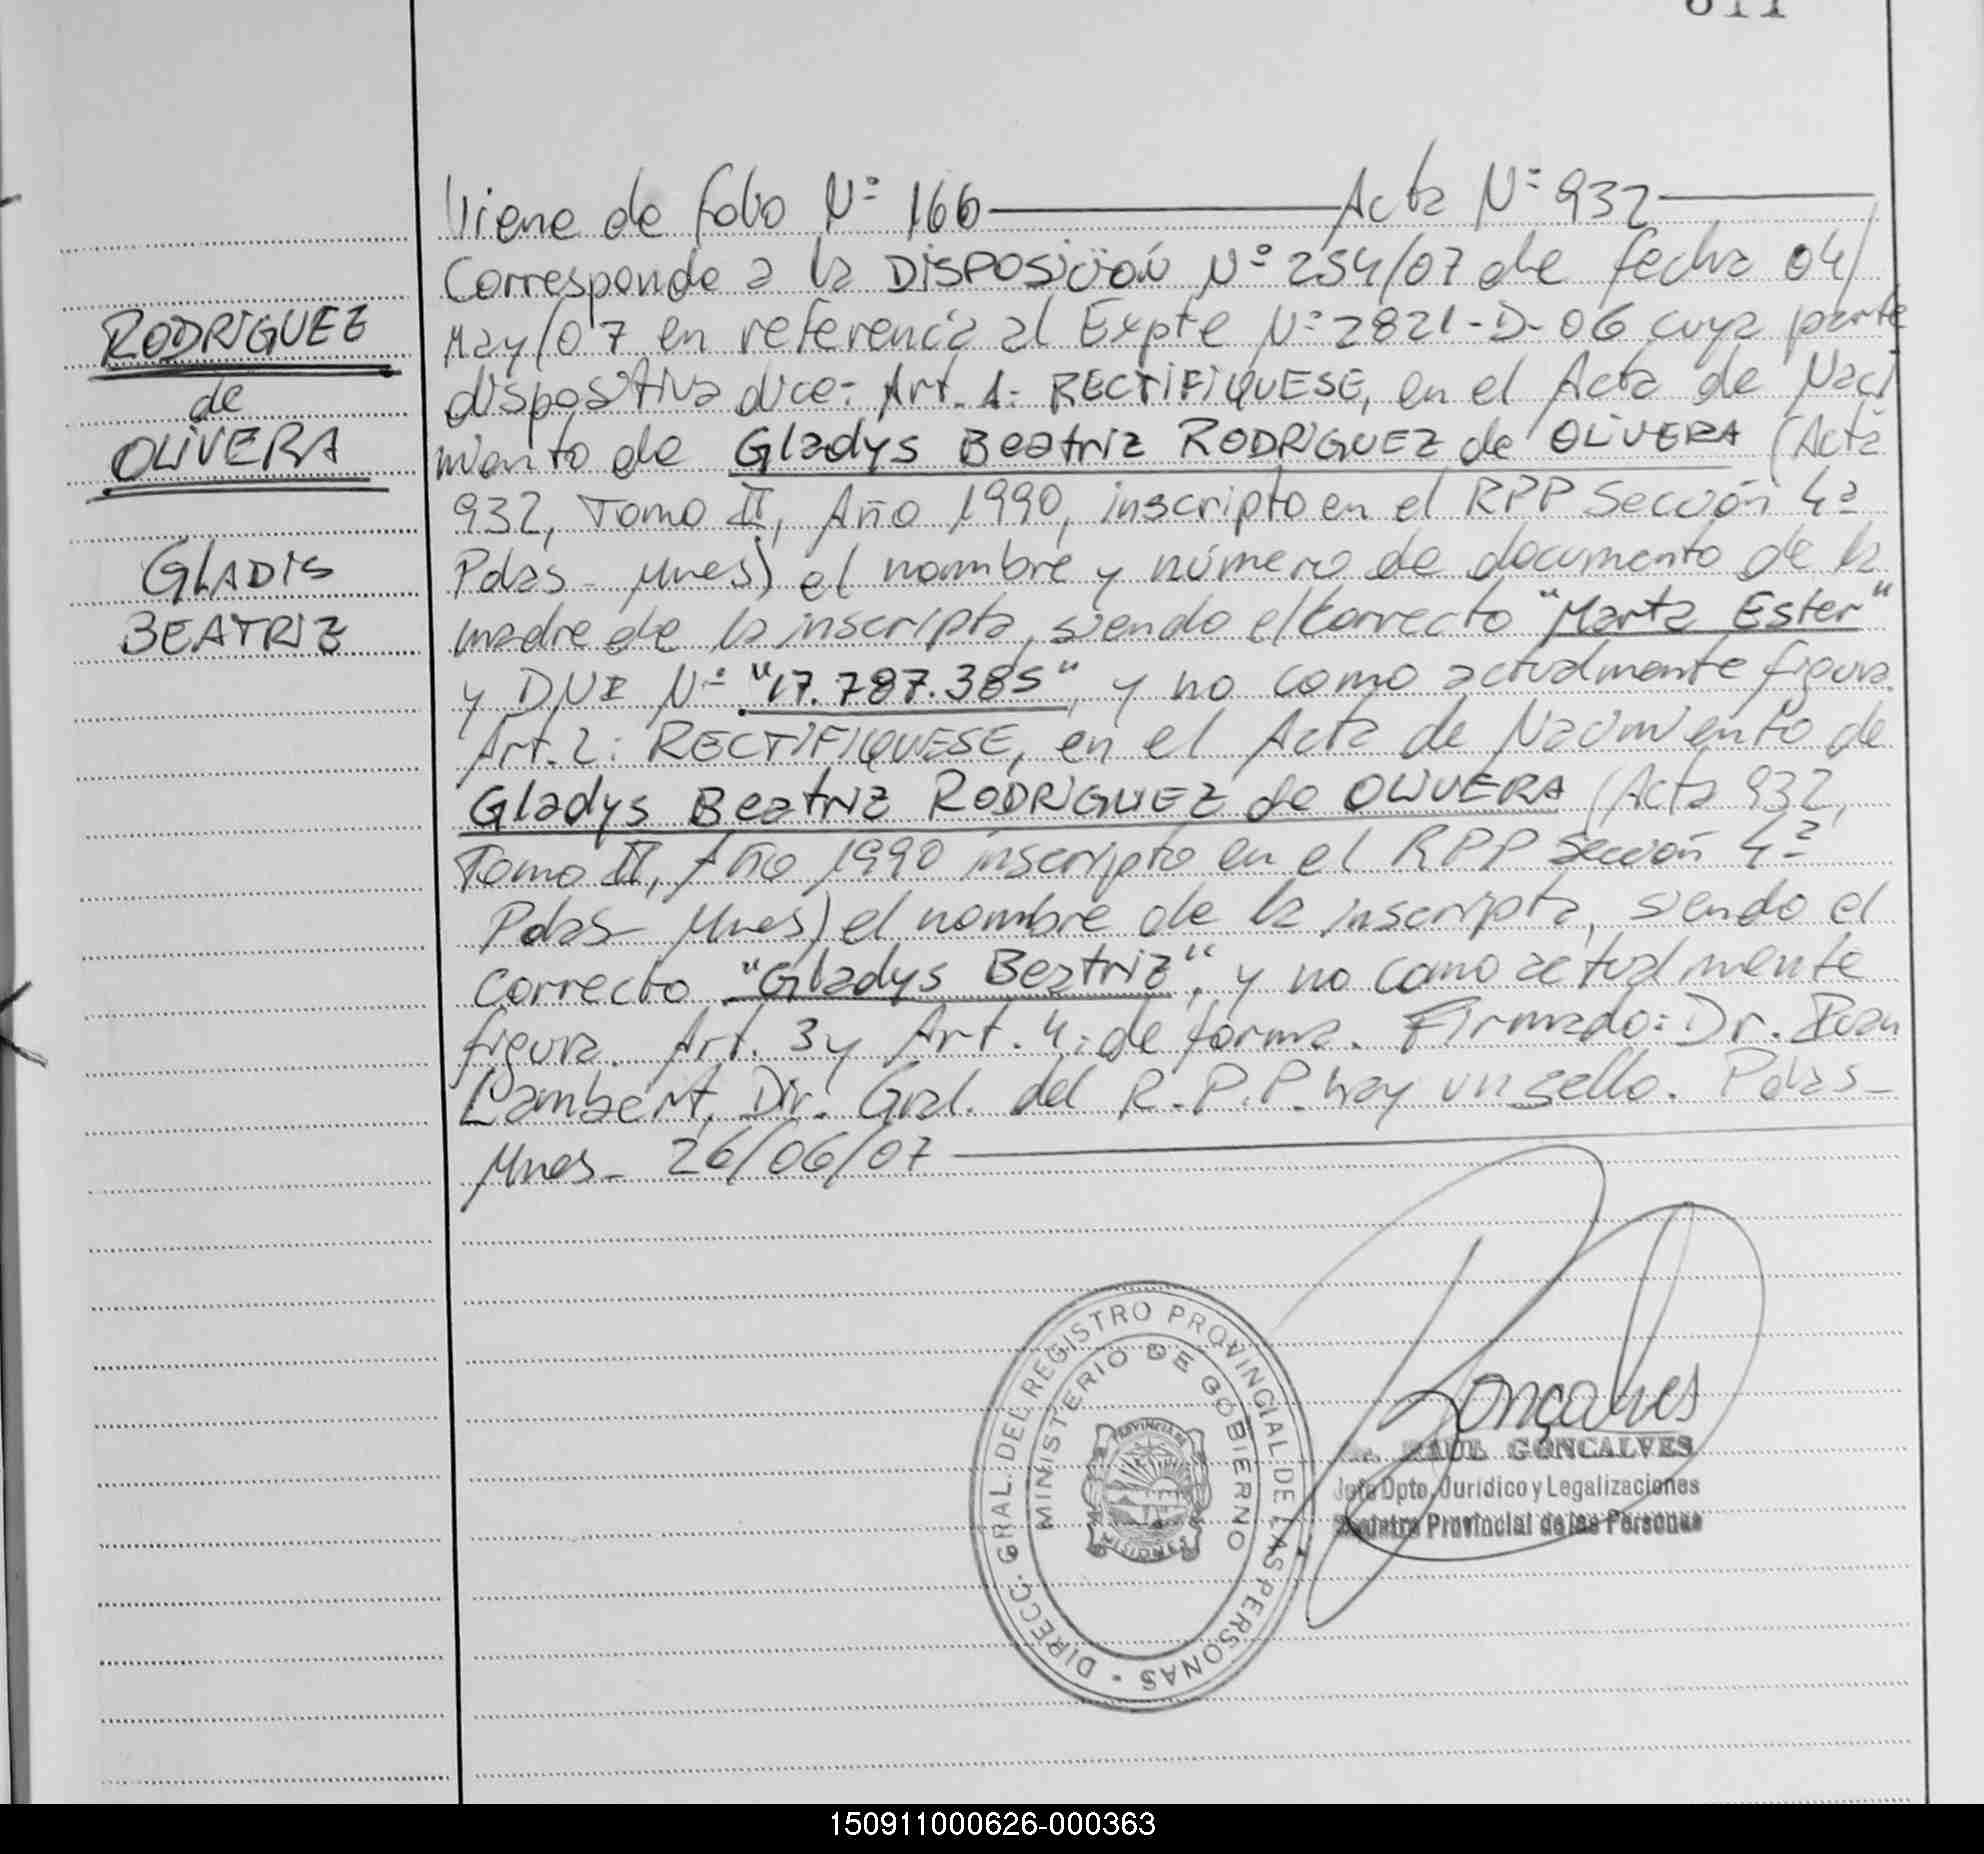 611
Viene de folio Nº 166 — Acta Nº 932 —
Corresponde a la DISPOSICIÓN Nº 254/07 de fecha 04/
May/07 en referencia al Expte Nº 2821-D-06 cuya parte
dispositiva dice: Art. 1: RECTIFIQUESE, en el Acta de Naci
miento de Gladys Beatriz RODRIGUEZ de OLIVERA (Acta
932, Tomo II, Año 1990, inscripto en el RPP Sección 4ª
Pdas - Mnes) el nombre y número de documento de la
madre de la inscripta, siendo el correcto "Marta Ester"
y DNI Nº "17.787.385", y no como actualmente figura.
Art. 2: RECTIFIQUESE, en el Acta de Nacimiento de
Gladys Beatriz RODRIGUEZ de OLIVERA (Acta 932,
Tomo II, Año 1990 inscripto en el RPP Sección 4ª
Pdas - Mnes) el nombre de la inscripta, siendo el
correcto "Gladys Beatriz", y no como actualmente
figura. Art. 3 y Art. 4: de forma. Firmado: Dr.
Lambert, Dir. Gral. del R.P.P. hay un sello. Pdas -
Mnes - 26/06/07 —
RODRIGUEZ
de
OLIVERA
GLADIS
BEATRIZ
DIRECC. GRAL. DEL REGISTRO PROVINCIAL DE LAS PERSONAS -
MINISTERIO DE GOBIERNO
PROVINCIA DE
MISIONES
Gonçalves
RAUL GONCALVES
Jefe Dpto. Jurídico y Legalizaciones
Registro Provincial de las Personas
150911000626-000363